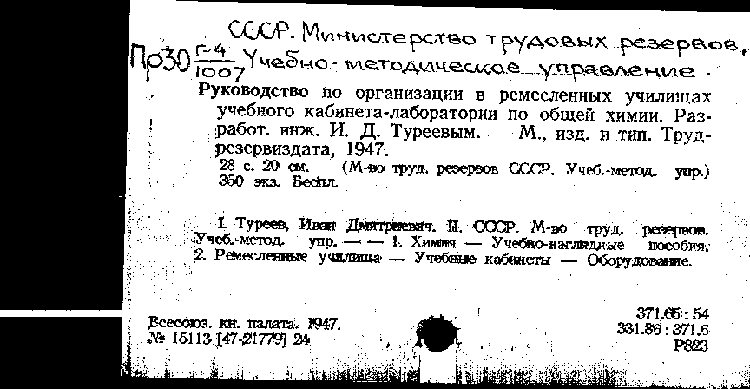 СССР. Министерство трудовых резервов.
Пр30 Г-4/1007 Учебно-методическое управление.
Руководство по организации в ремесленных училищах
учебного кабинета-лаборатории по общей химии. Раз-
работ. инж. И. Д. Туреевым. М., изд. и тип. Труд-
резервиздата, 1947.
28 с. 20 см. (М-во труд. резервов СССР. Учеб.-метод. упр.)
350 экз. Беспл.
1. Туреев, Иван Дмитриевич. II. СССР. М-во труд. резервов.
Учеб.-метод. упр. — — 1. Химия — Учебно-наглядные пособия.
2. Ремесленные училища — Учебные кабинеты — Оборудование.
371.66 : 54
Всесоюз. кн. палата. 1947.
331.86 : 371.6
№ 15113 [47-21779] 24
Р823